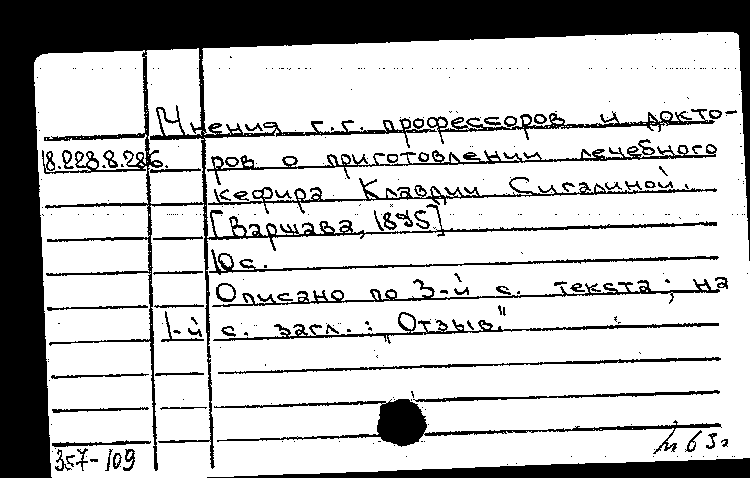 Мнения г.г. профессоров и докто-
18.228.8.286. ров о приготовлении лечебного
кефира Клавдии Сигалиной.
[Варшава, 1895].
10с.
Описано по 3-й с. текста; на
1-й с. загл.: "Отзыв."
357-109